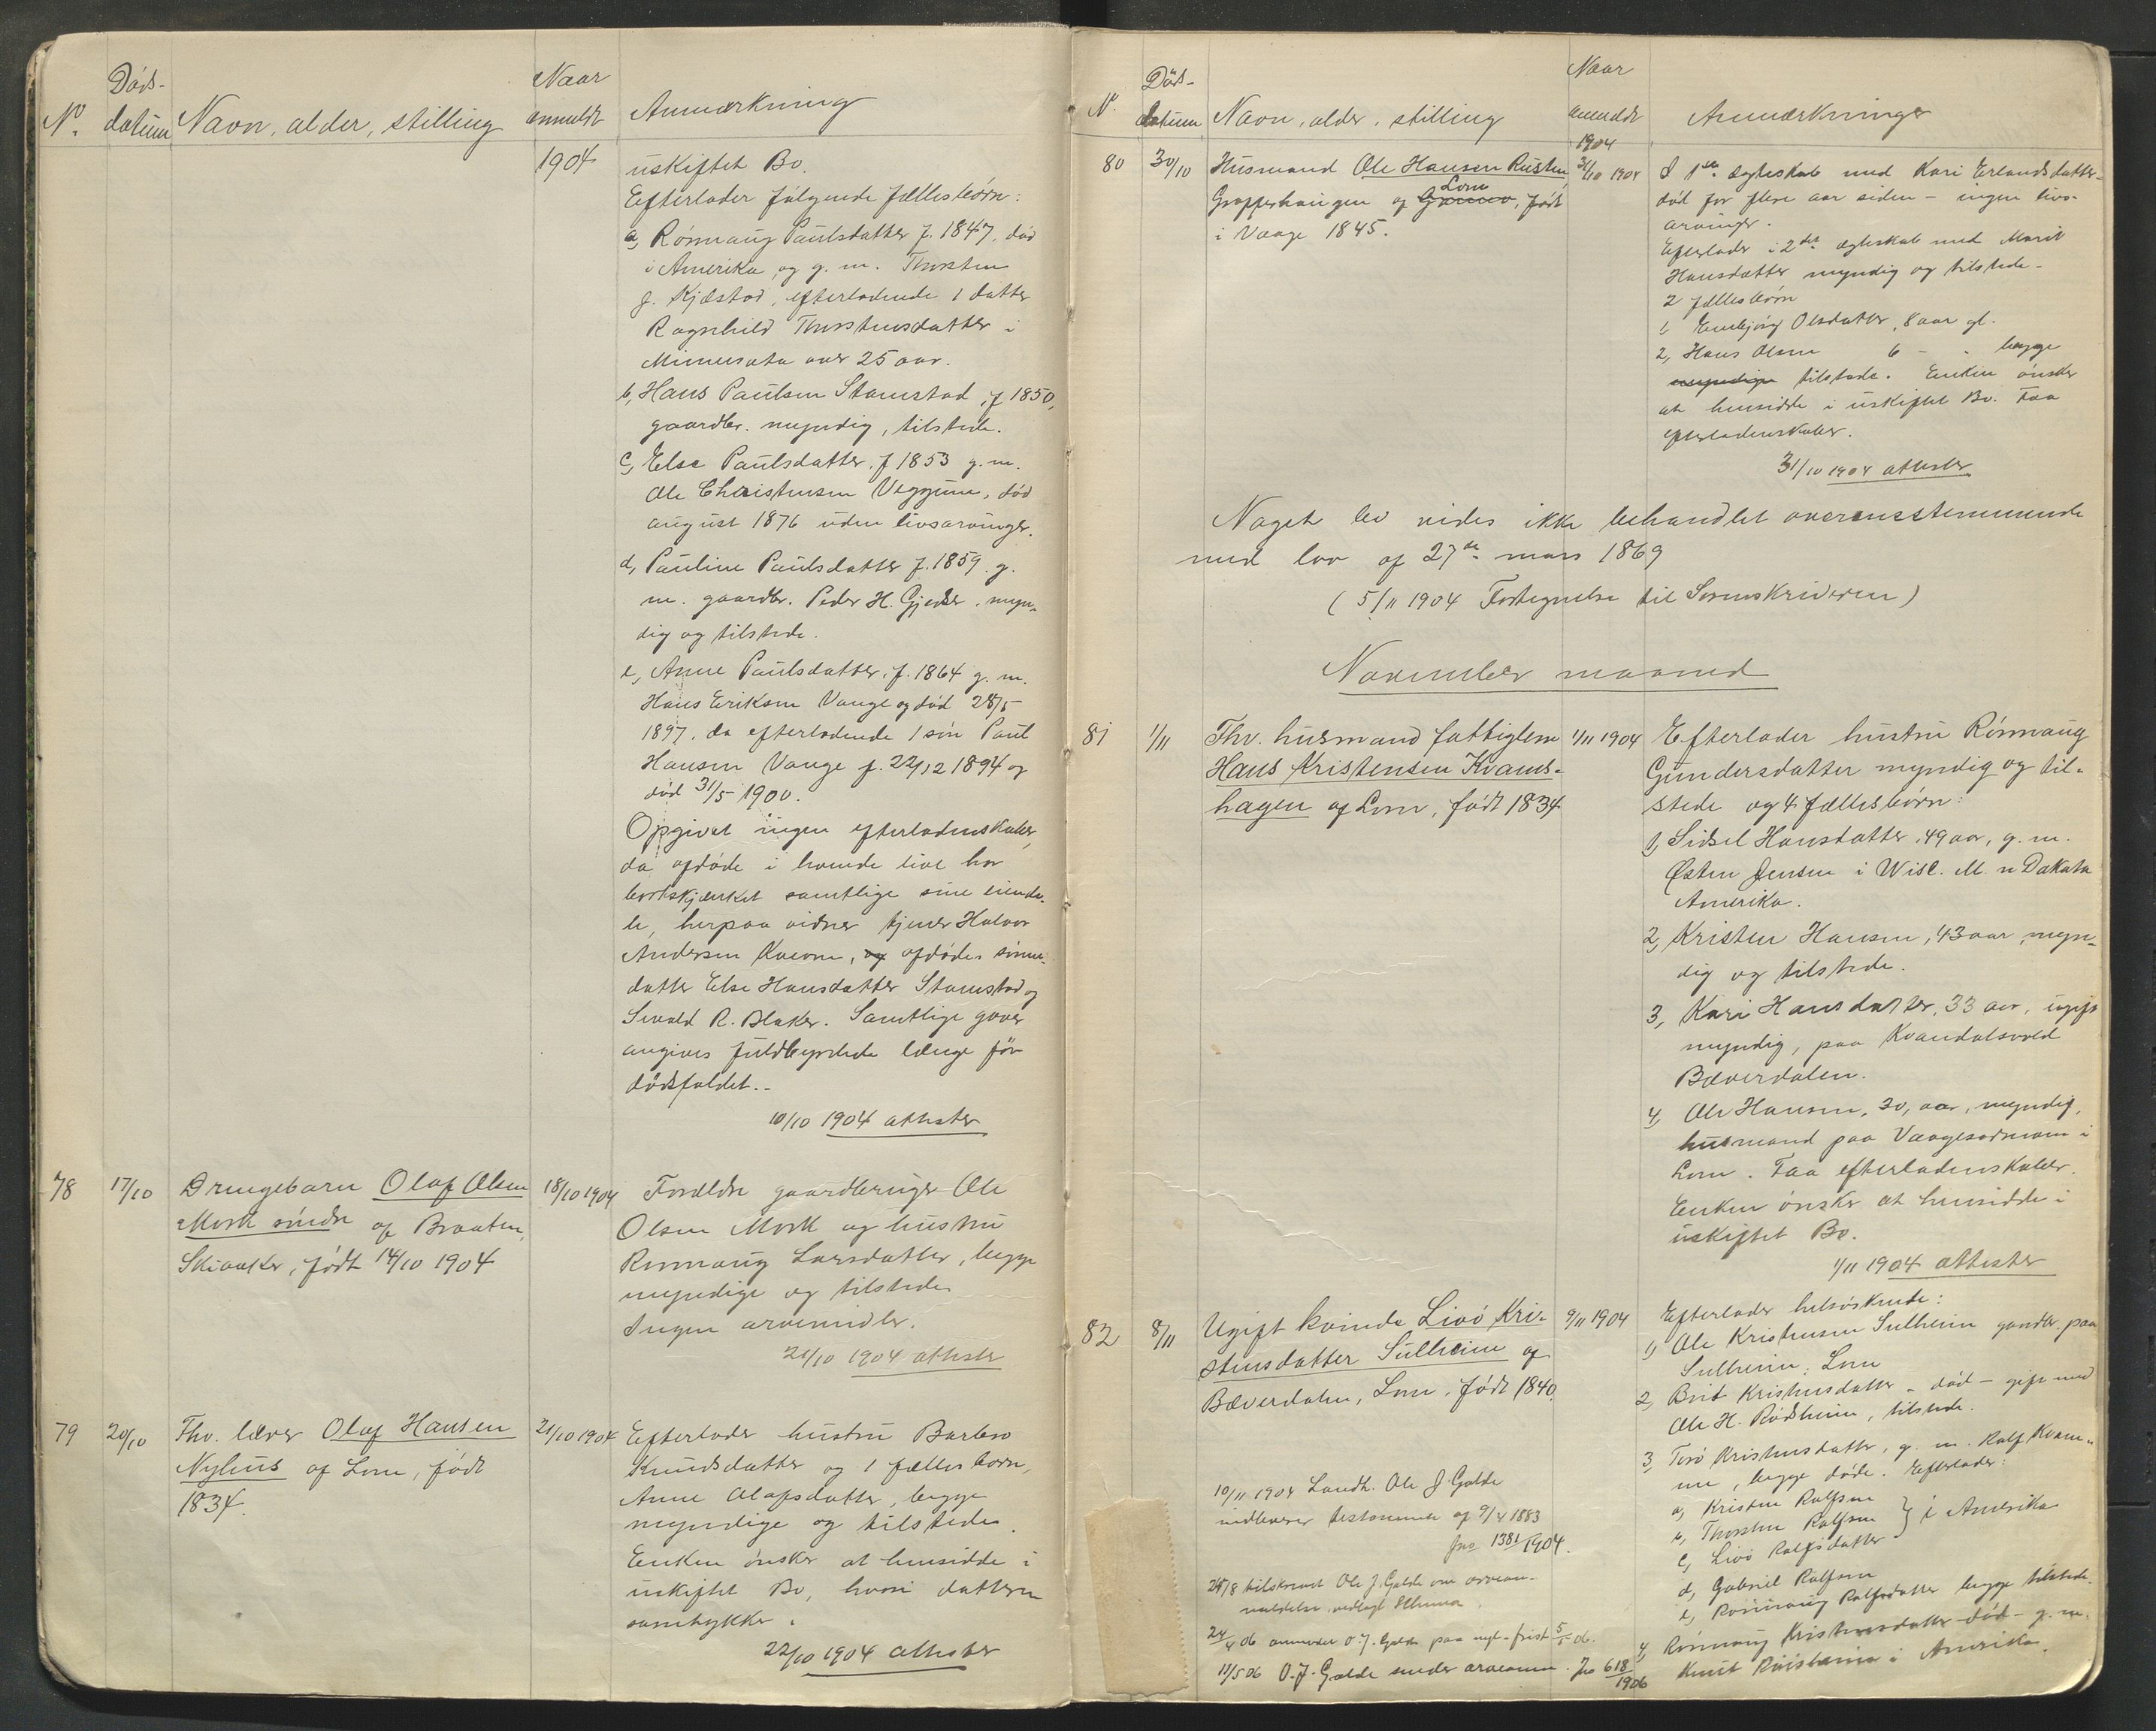 No. Döds-
datum Navn, alder, stilling Naar
anmeldt Anmærkning
1904 uskiftet Bo.
Efterlader følgende fællesbørn:
a, Rønnaug Paulsdatter f. 1847, död
i Amerika, og g. m. Thorsten
J. Kjæstad, efterladende 1 datter
Ragnhild Thorstensdatter i
Minnesota over 25 aar.
b, Hans Paulsen Stamstad, f 1850,
gaardbr. myndig, tilstede.
c, Else Paulsdatter, f 1853 g. m.
Ole Christensen Veggum, död
august 1876 uden livsarvinger.
d, Pauline Paulsdatter f. 1859. g.
m. gaardbr. Peder H. Gjeder, myn-
dig og tilstede.
e, Anne Paulsdatter, f. 1864 g. m.
Hans Eriksen Vange og död 28/5
1897, da efterladende 1 sön Paul
Hansen Vange f. 22/12 1894 og
död 31/5 1900.
Opgivet ingen efterladenskaber,
da afdöde i levende live har
bortskjænket samtlige sine eiende-
le, herpaa vidner tjener Halvor
Andersen Kvorne, og afdödes sönne-
datter Else Hansdatter Stamstad og
Sivald R. Blaker. Samtlige gaver
angives fuldbyrdede længe för
dödsfaldet.-
10/10 1904 attester
78 17/10 Drengebarn Olaf Olsen 18/10 1904 Forældre gaardbruger Ole
Mork söndre af Braaten, Olsen Mork og hustru
Skiaaker, födt 14/10 1904 Rønnaug Larsdatter, begge
myndige og tilstede
Ingen arvemidler.
21/10 1904 attester
79 20/10 Fhv. lærer Olaf Hansen 21/10 1904 Efterlader hustru Barbro
Nyhus af Lom, födt Knudsdatter og 1 fællesbarn,
1834. Anne Olafsdatter, begge
myndige og tilstede.
Enken önsker at hensidde i
uskiftet Bo, hvori datteren
samtykker.
22/10 1904 attester
N. Döds-
datum Navn, alder, stilling Naar
anmeldt
1904 Anmærkninger
80 30/10 Husmand Ole Hansen Rusten 31/10 1904 I 1ste ægteskab med Kari Erlandsdatter-
Grafferhaugen af Lom, födt död for flere aar siden - ingen livs-
i Vaage 1845. arvinger.
Efterlader i 2det ægteskab med Marit
Hansdatter myndig og tilstede -
2 fællesbørn
1, Embjörg Olsdatter, 8 aar gl.
2, Hans Olsen 6 - - begge
myndige tilstede. Enken önsker
at hensidde i uskiftet Bo. Faa
efterladenskaber.
31/10 1904 attester
Noget bo vides ikke behandlet overensstemmende
med lov af 27de mars 1869
(5/11 1904 Fortegnelse til Sorenskriveren)
November maaned
81 1/11 Fhv. husmand fattiglem 1/11 1904 Efterlader hustru Rønnaug
Hans Kristensen Kvams- Gundersdatter myndig og til-
hagen af Lom, födt 1834. stede og 4 fællesbørn:
1, Sidsel Hansdatter, 49 aar, g. m.
Østen Jensen i Wisc. M. n Dakota
Amerika.
2, Kristen Hansen, 43 aar, myn-
dig og tilstede.
3, Kari Hansdatter, 33 aar, ugift
myndig, paa Kvandalsvold
Bæverdalen.
4, Ole Hansen, 30, aar, myndig,
husmand paa i
Lom. Faa efterladenskaber.
Enken önsker at hensidde i
uskiftet Bo.
1/11 1904 attester
82 8/11 Ugift kvinde Livö Kri- 9/11 1904 Efterlader helsöskende:
stensdatter Sulheim af 1, Ole Kristensen Sulheim gaardbr. paa
Bæverdalen, Lom, födt 1840. Sulheim, Lom
2, Brit Kristensdatter - död - gift med
Ole H. Rödsheim, tilstede.
3, Torö Kristensdatter, g. m. Ralf Kvam-
me, begge döde. Efterlader:
a, Kristen Ralfsen
b, Thorsten Ralfsen } i Amerika
c, Livö Ralfsdatter
d, Gabriel Ralfsen
e, Rönnaug Ralfsdatter begge tilstede.
4, Rönnaug Kristensdatter - död - g. m.
Knut i Amerika.
10/11 1904 Landh. Ole J. Galde
indleverer testamente af 9/4 1883
Jno 1381/1904.
25/8 tilskrevet Ole J. Galde om arvean-
meldelse, vedlagt
24/4 06 anmoder O. J. Galde paa nyt - frist 5/5 06.
11/5 06 O. J. Galde sender arveanm. Jno 618/1906